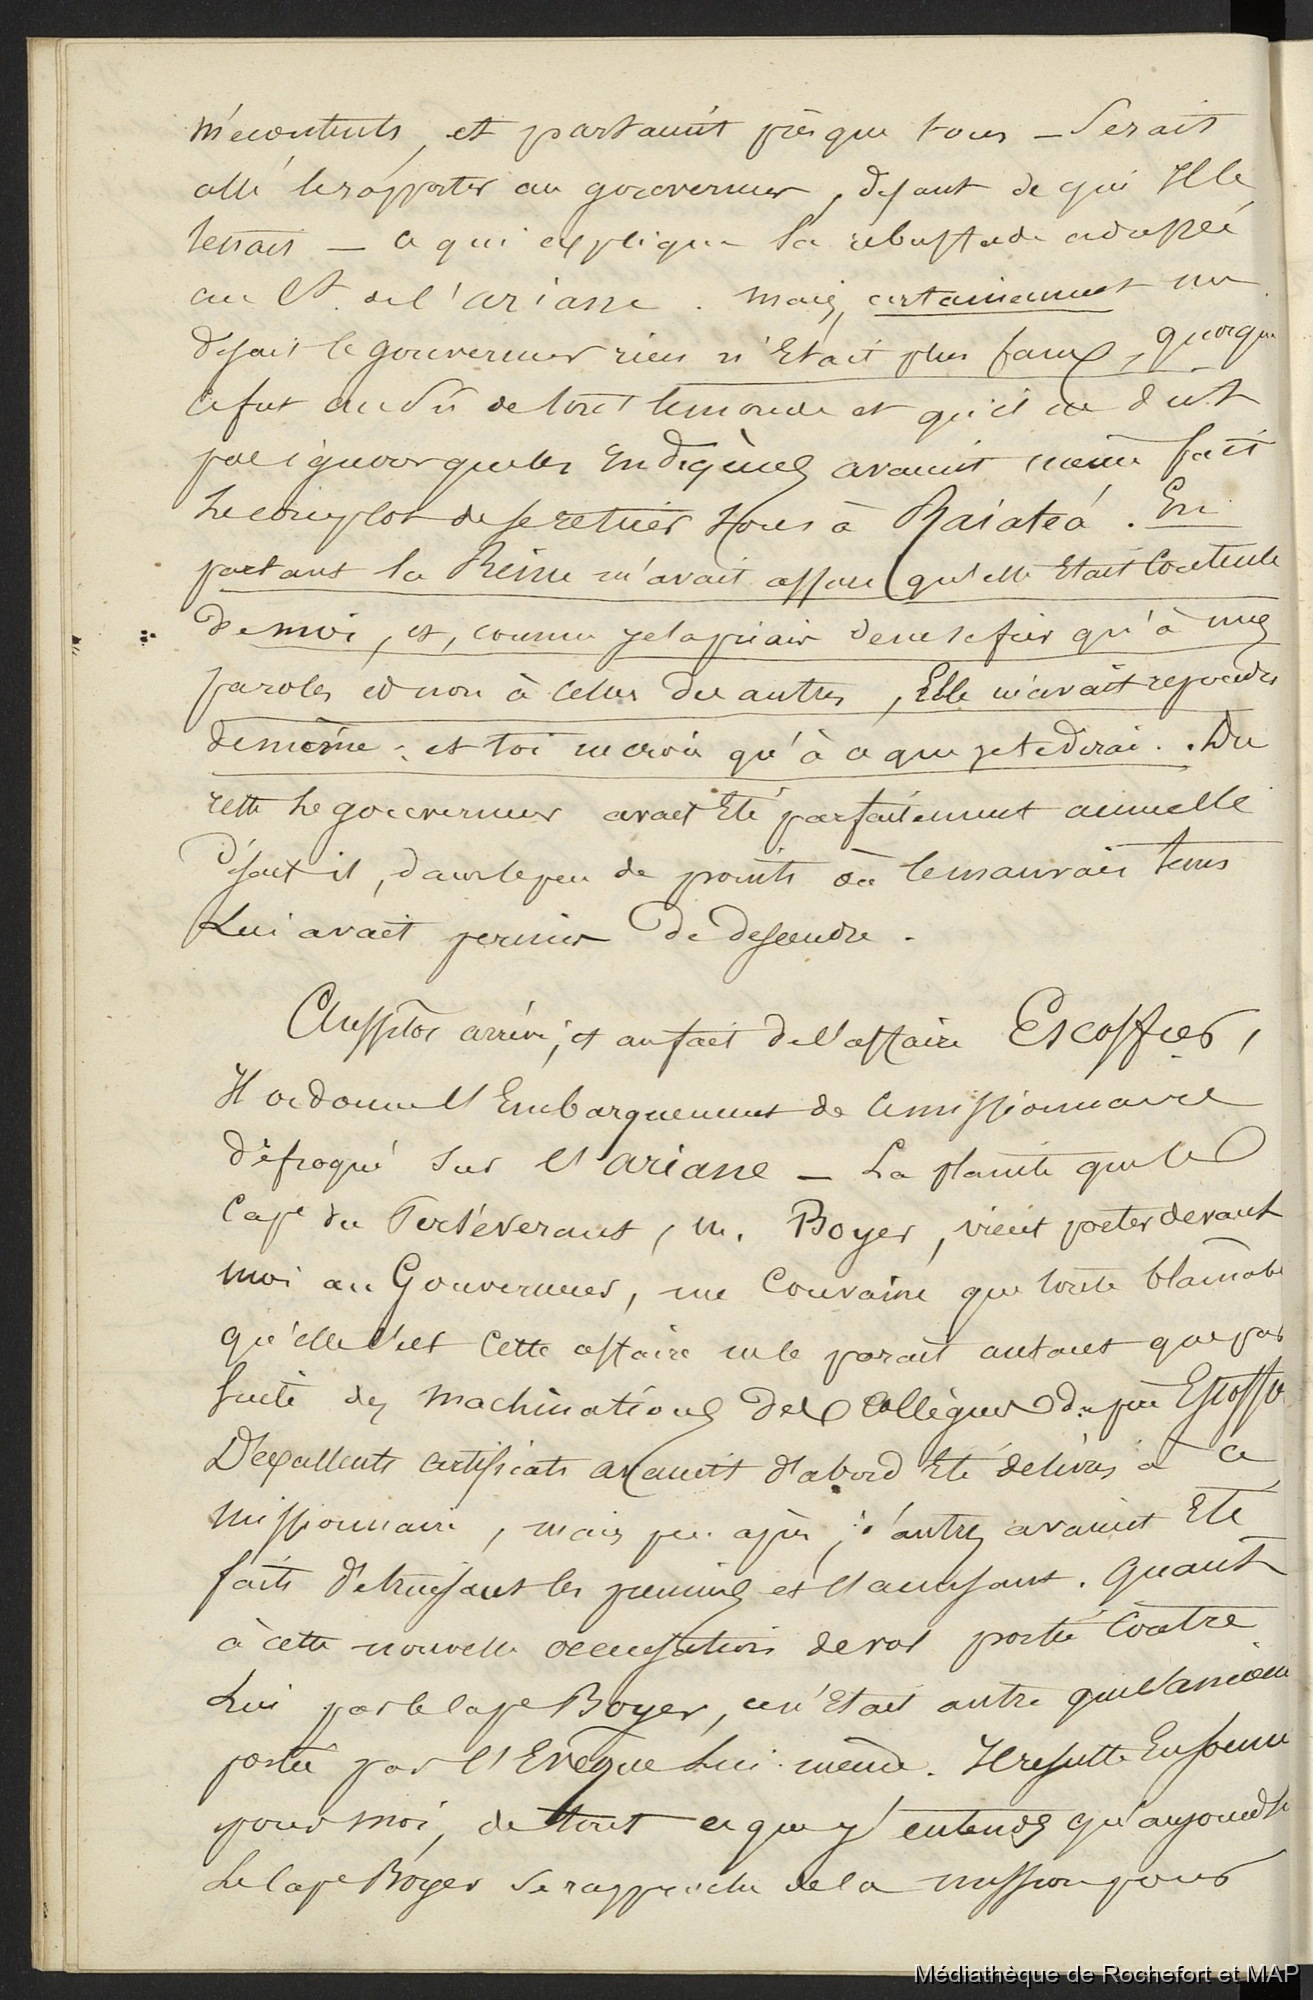 mécontents, et partaient presque tous — serait
allé le rapporter au gouverneur, disant de qui Il le
tenait — ce qui explique la rebuffade adressée
au Ct. de l'ariane. mais, certainement me
disait le gouverneur rien n'Etait plus faux, quoique
ce fut au sû de tout le monde et qu'il ne dut
pas ignorer que les Indigènes avaient même fait
le complot de se retirer tous à Raiatéa. En
partant la Reine m'avait assuré qu'elle Etait Contente
de moi, et, comme je la priais de ne se fier qu'à mes
paroles et non à celles des autres, Elle m'avait répondu
de même: et toi ne crois qu'à ce que je te dirai. Du
reste le gouverneur avait Eté parfaitement accueilli
disait il, dans le peu de points où le mauvais tems
Lui avait permis de descendre.
Aussitôt arrivé, et au fait de l'affaire Escoffier,
Il ordonne l'Embarquement de ce missionnaire
défroqué sur l'ariane — La plainte que le
Cape du Persévérant, m. Boyer, vient porter devant
moi au Gouverneur, me Convainc que toute blamable
qu'elle soit cette affaire ne le parait autant que par
suite des machinations des Collègues du père Escoffier
D'excellents certificats avaient d'abord Eté délivrés à ce
missionnaire, mais peu après, d'autres avaient Eté
faits détruisant les premiers et l'accusant. Quant
à cette nouvelle accusation de vol portée Contre
Lui par le cape Boyer, ce n'Etait autre que l'ancienne
portée par l'Evêque Lui-même. Il résulte En somme
pour moi, de tout ce que j'entends qu'aujourd'h
Le Cape Boyer se rapproche de la mission pour
Médiathèque de Rochefort et MAP